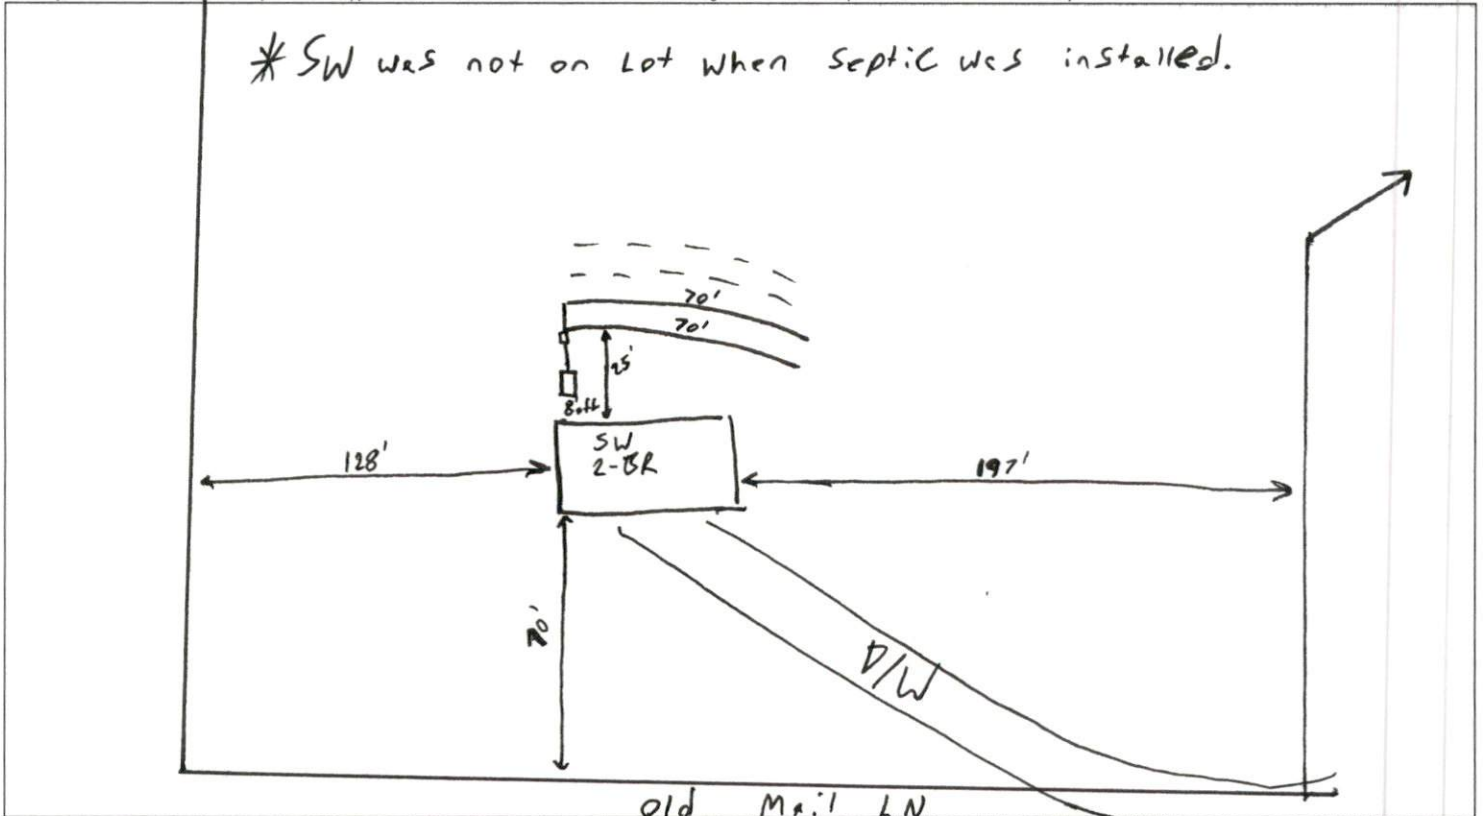 * SW was not on Lot when septic was installed.
70'
70'
25'
8.ft
SW
2-BR
128'
197'
70'
D/W
old Mail LN